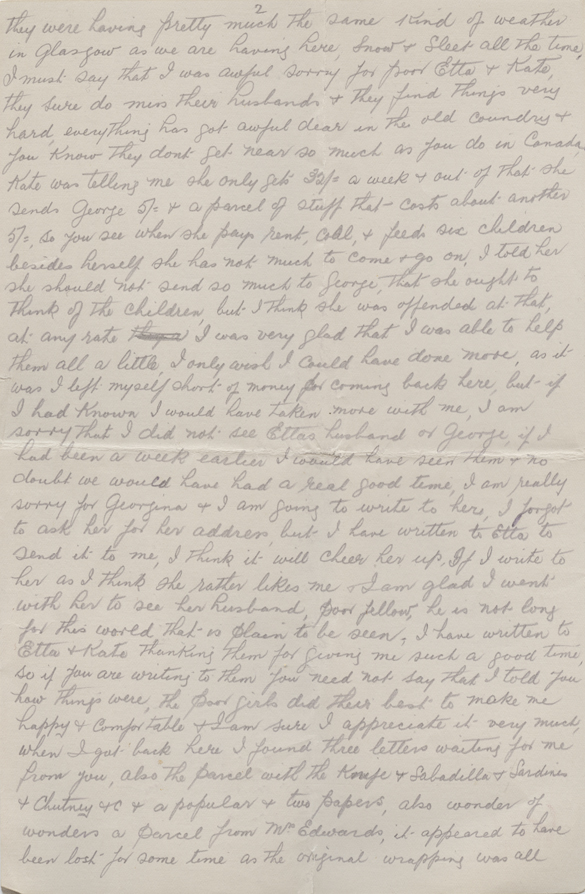 2
they were having pretty much the same kind of weather
in Glasgow as we are having here, Snow & Sleet all the time,
I must say that I was awful sorry for poor Etta & Kate,
they sure do miss their husbands & they find things very
hard, everything has got awful dear in the old country &
you know they dont get near so much as you do in Canada,
Kate was telling me she only gets 32/= a week & out of that she
sends George 5/= & a parcel of stuff that costs about another
5/=, so you see when she pays rent, coal, & feeds six children
besides herself she has not much to come & go on, I told her
she should not send so much to George, that she ought to
think of the children, but I think she was offended at that,
at any rate I was very glad that I was able to help
them all a little, I only wish I could have done more, as it
was I left myself short of money for coming back here, but if
I had known I would have taken more with me, I am
sorry that I did not see Ettas husband or George, if I
had been a week earlier I would have seen them & no
doubt we would have had a real good time, I am really
sorry for Georgina & I am going to write to here, I forgot
to ask her for her address, but I have written to Etta to
send it to me, I think it will cheer her up, If I write to
her as I think she rather likes me & I am glad I went
with her to see her husband, poor fellow, he is not long
for this world that is plain to be seen, I have written to
Etta & Kate thanking them for giving me such a good time,
so if you are writing to them you need not say that I told you
how things were, the poor girls did their best to make me
happy & comfortable & I am sure I appreciate it very much,
when I got back here I found three letters waiting for me
from you, also the parcel with the & Sabadilla & Sardines
& Chutney &c & a popular & two papers, also wonder of
wonders a parcel from Mrs Edwards, it appeared to have
been lost for some time as the original wrapping was all